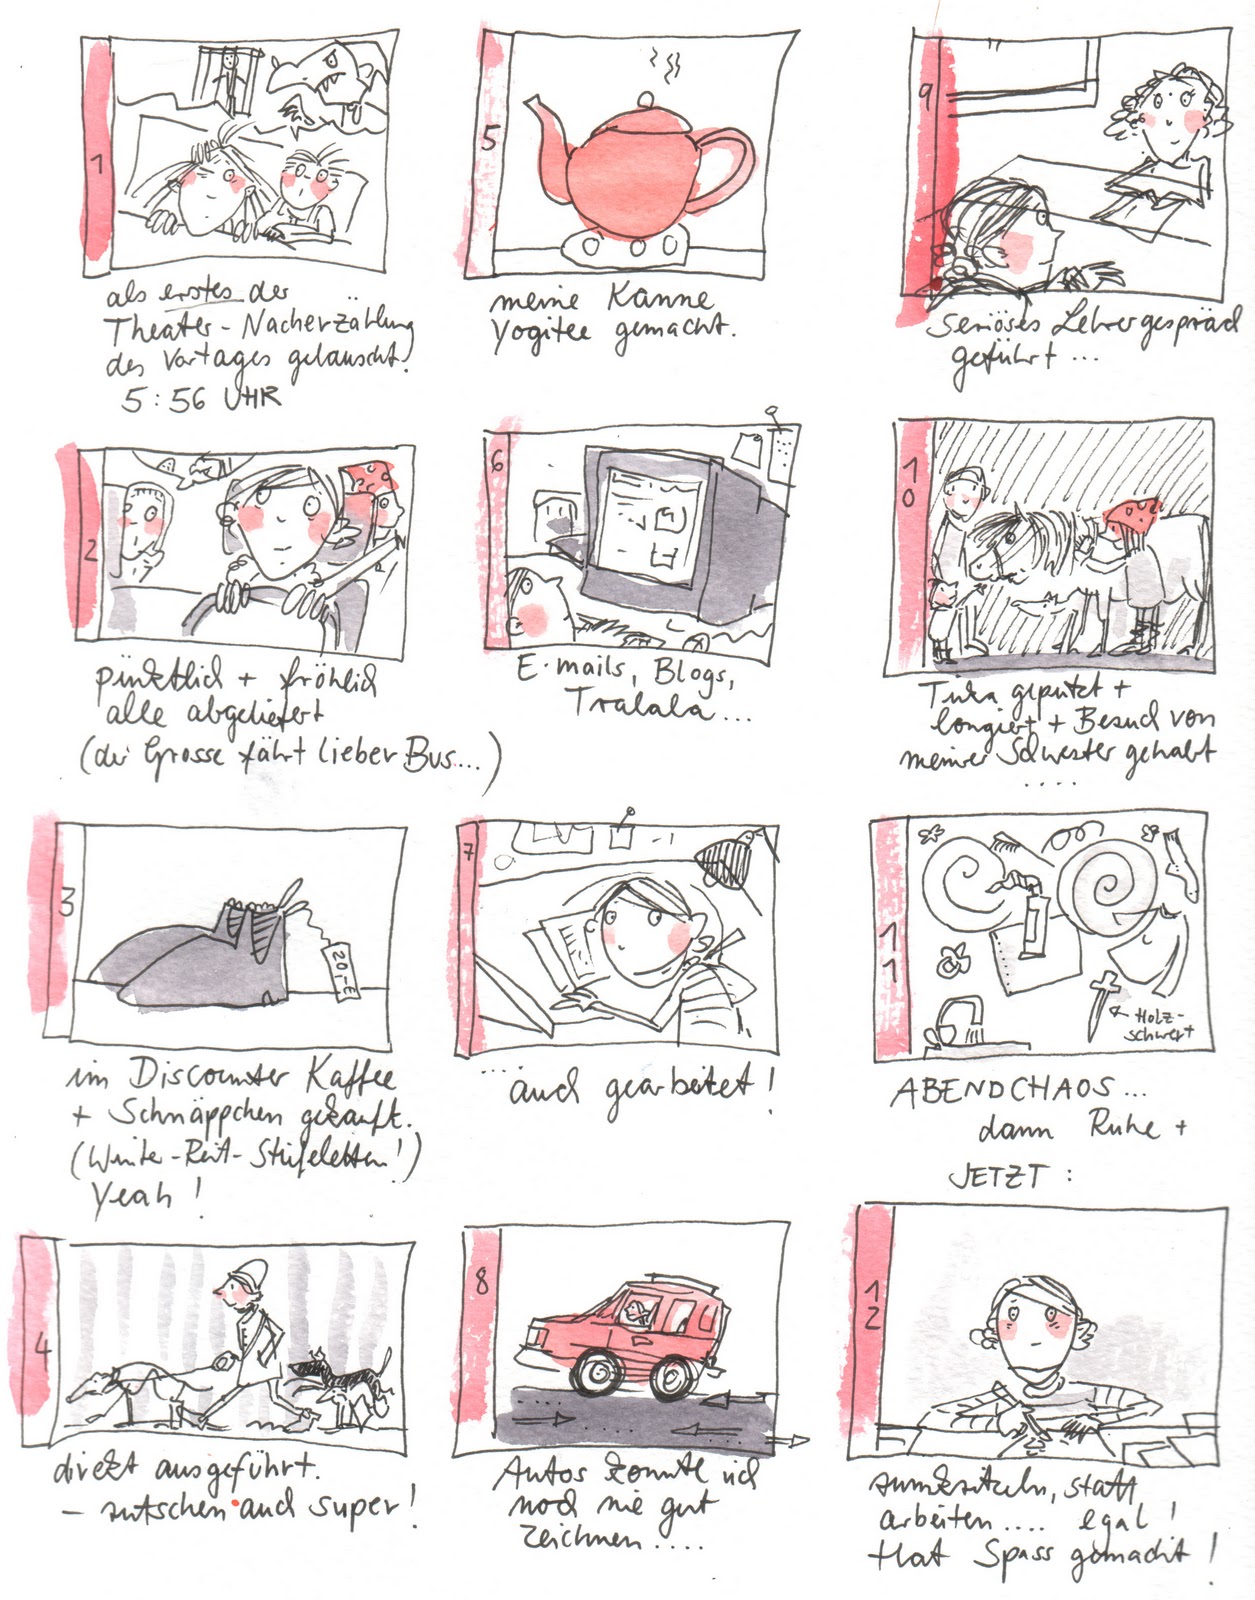 1
als erstes der
Theater-Nacherzählung
des Vortages gelauscht!
5:56 UHR
2
pünktlich + fröhlich
alle abgeliefert
(der Grosse fährt lieber Bus....)
3
20,-€
im Discounter Kaffee
+ Schnäppchen gekauft.
(Winter-Reit-Stiefeletten!)
Yeah!
4
direkt ausgeführt.
- rutschen auch super!
5
meine Kanne
Yogitee gemacht.
6
E-mails, Blogs,
Tralala...
7
....auch gearbeitet!
8
Autos konnte ich
noch nie gut
zeichnen....
9
Seriöses Lehrergespräch
geführt...
10
geputzt +
longiert + Besuch von
meiner Schwester gehabt
....
11
Holz-
schwert
ABENDCHAOS...
dann Ruhe +
JETZT:
12
rumkritzeln, statt
arbeiten.... egal!
Hat Spass gemacht!